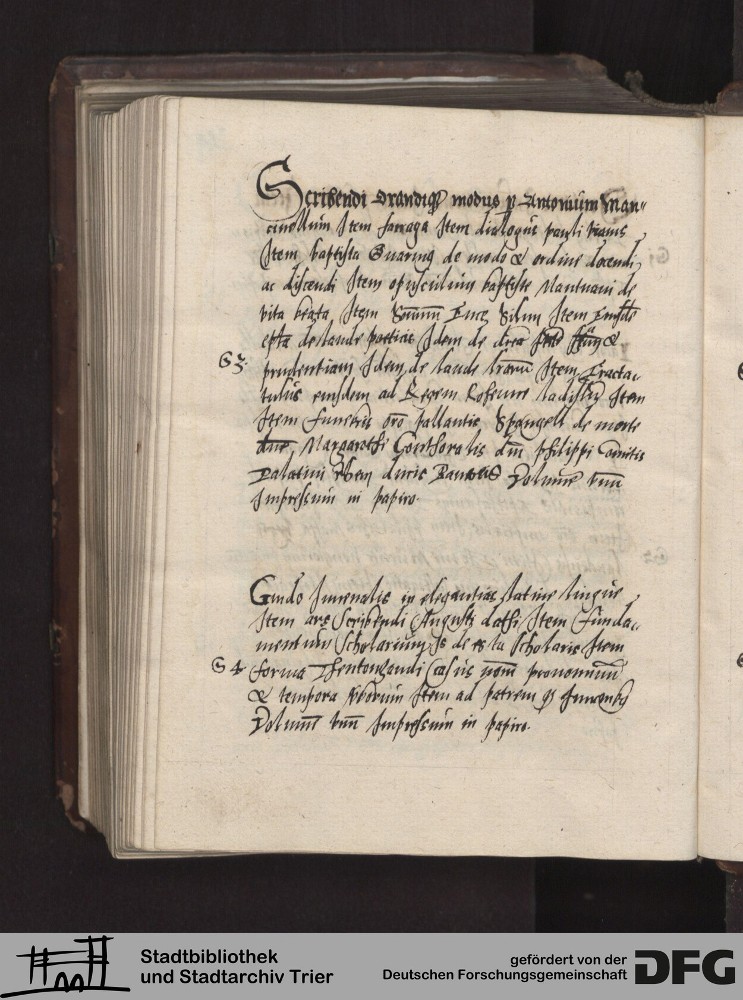 Scribendi Orandiq modus p Antonium Man"
cinellum Item farrago Item dialogus pauli
Item baptista Guarinus de modo & ordine docendi
ac discendi Item opusculum baptiste Mantuani de
vita beata Item Enee Silvii Item
de laude poetices Idem de &
S 3. prudentiam Idem de laude Item Tracta„
tulus eiusdem ad Regem ladislaum Item
Item funebris oro pallantis Spangell de morte
dne Margarethe Consoralis dni philippi Comitis
Palatini Rheni ducis Bavarie Volume unu
Impressum in papiro.
Guido Iuuenalis in elegantias latine lingue
Item ars scribendi Augusti dathi Item funda„
mentum scholarium Is de es ta scholaris Item
S 4. forma casus nom pronominum
& tempora verborum Item ad patrem
Volume unu Impressum in papiro.
Stadtbibliothek
und Stadtarchiv Trier
gefördert von der
Deutschen Forschungsgemeinschaft
DFG